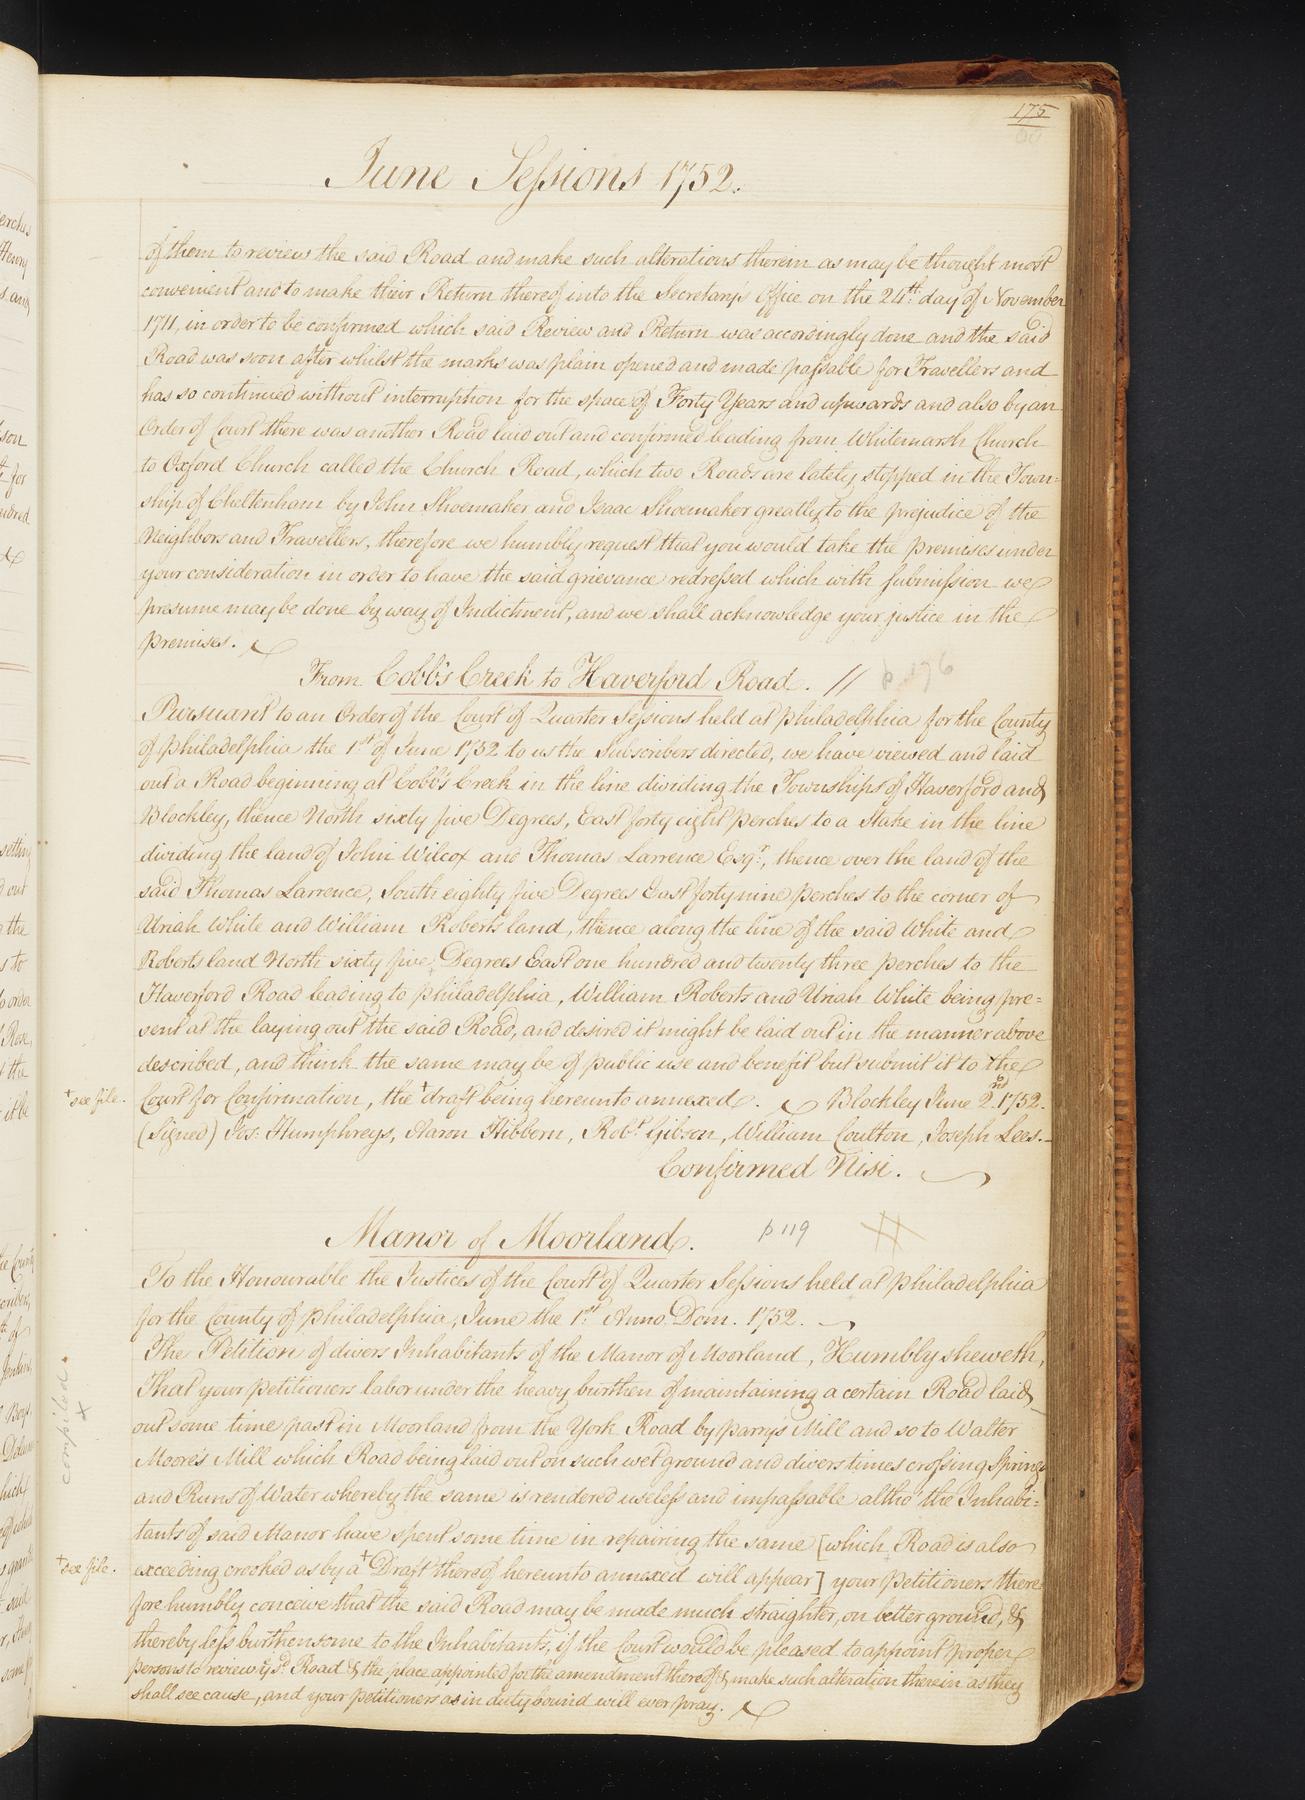 175
June Sessions 1752.
of them to review the said Road and make such alterations therein as may be thought most
convenient and to make their Return thereof into the Secretary's Office on the 24th day of November
1711, in order to be confirmed which said Review and Return was accordingly done and the said
Road was soon after whilst the marks was plain opened and made passable for Travellers and
has so continued without interruption for the space of Forty Years and upwards and also by an
Order of Court there was another Road laid out and confirmed leading from Whitemarsh Church
to Oxford Church called the Church Road, which two Roads are lately stopped in the Town=
ship of Cheltenham by John Shoemaker and Isaac Shoemaker greatly to the prejudice of the
Neighbors and Travellers, therefore we humbly request that you would take the premises under
your consideration in order to have the said grievance redressed which with submission we
presume may be done by way of Indictment, and we shall acknowledge your justice in the
premises.
From Cobb's Creek to Haverford Road. // p. 176
Pursuant to an Order of the Court of Quarter Sessions held at Philadelphia for the County
of Philadelphia the 1st of June 1752 to us the Subscribers directed, we have viewed and laid
out a Road beginning at Cobb's Creek in the line dividing the Townships of Haverford and
Blockley, thence North sixty five Degrees, East forty eight perches to a Stake in the line
dividing the land of John Wilcox and Thomas Larrence Esqr., thence over the land of the
said Thomas Larrence, South eighty five Degrees East forty nine perches to the corner of
Uriah White and William Roberts land, thence along the line of the said White and
Roberts land North sixty five Degrees East one hundred and twenty three perches to the
Haverford Road leading to Philadelphia, William Roberts and Uriah White being pre=
sent at the laying out the said Road, and desired it might be laid out in the manner above
described, and think the same may be of public use and benefit but submit it to the
+see file. Court for Confirmation, the + draft being hereunto annexed. Blockley June 2nd 1752.
(Signed) Jos: Humphreys, Aaron Hibbern, Robt Gibson, William Coulton, Joseph Lees.
Confirmed Nisi.
Manor of Moorland. p 119
To the Honourable the Justices of the Court of Quarter Sessions held at Philadelphia
for the County of Philadelphia, June the 1st Anno. Dom. 1752.
The Petition of divers Inhabitants of the Manor of Moorland, Humbly sheweth,
That your petitioners labor under the heavy burthen of maintaining a certain Road laid
out some time past in Moorland from the York Road by Parry's Mill and so to Walter
Moore's Mill which Road being laid out on such wet ground and divers times crossing Springs
and Runs of Water whereby the same is rendered useless and impassable altho' the Inhabi=
tants of said Manor have spent some time in repairing the same [which Road is also
+see file. exceeding crooked as by a + Draft thereof hereunto annexed will appear] your Petitioners there
fore humbly conceive that the said Road may be made much straighter, on better ground, &
thereby less burthensome to the Inhabitants, if the Court would be pleased to appoint proper
persons to review ye sd Road & the place appointed for the amendment thereof & make such alteration therein as they
shall see cause, and your petitioners as in duty bound will ever pray.
compiled
x